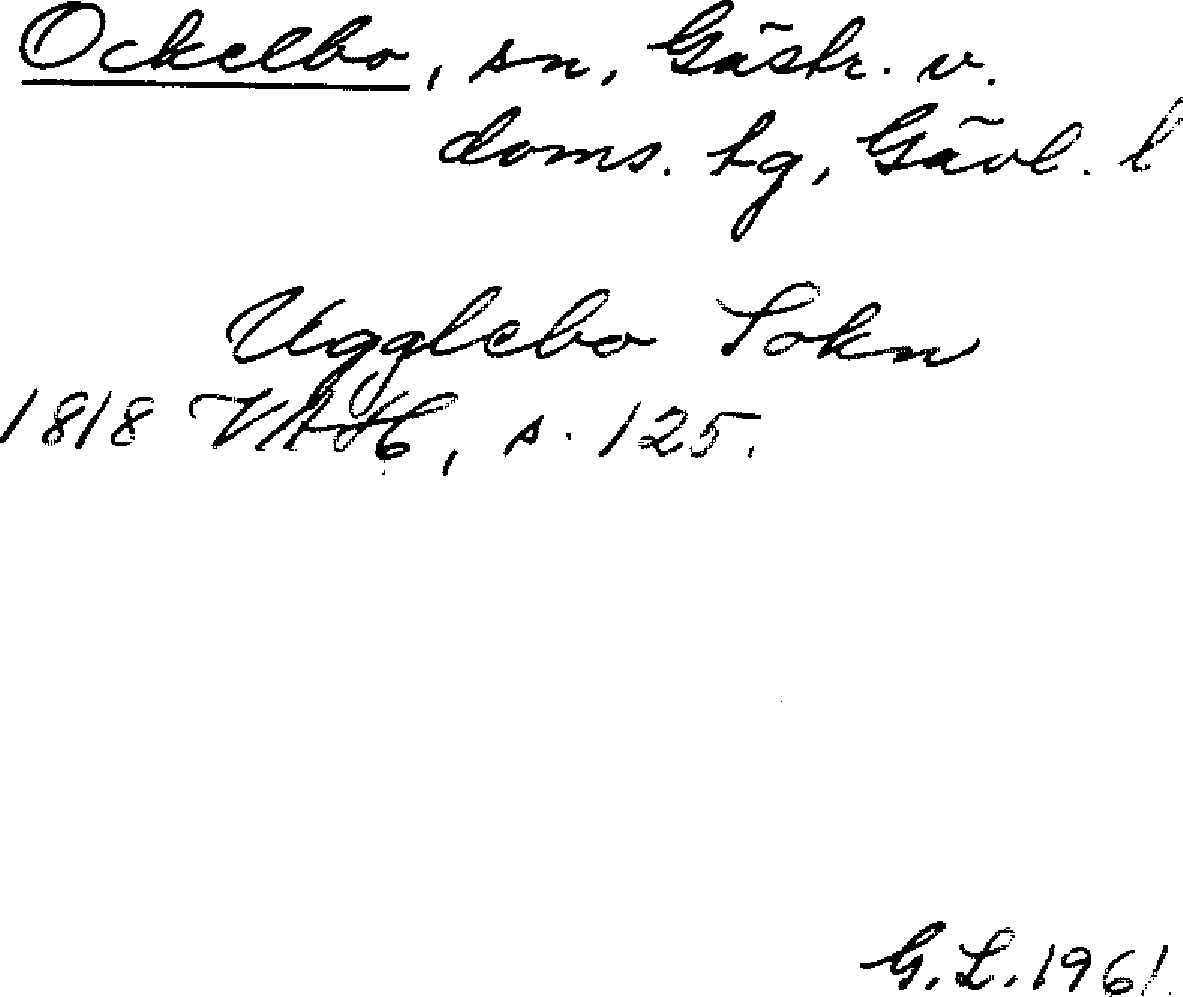 Ockelbo, sn, Gästr. v.
doms. tg, Gävl. l
Ugglebo Sokn
1818 VAH, s. 125.
G.L. 1961.